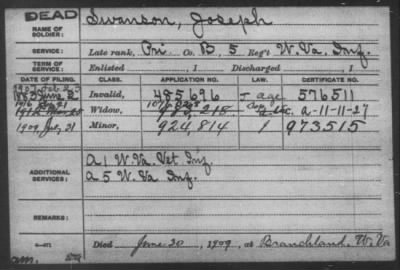 DEAD
NAME OF SOLDIER: Swanson, Joseph
SERVICE: Late rank, Pri Co. B, 5 Reg't W. Va. Inf.
TERM OF SERVICE: Enlisted , 1 Discharged , 1
DATE OF FILING. CLASS. APPLICATION NO. LAW. CERTIFICATE NO.
Invalid, 485696 J age 576511
1916 Widow, a-11-11-27
1909 Jul, 31 Minor, 924,814 973515
ADDITIONAL SERVICES: A 1 W. Va. Vet Inf.
A 5 W. Va Inf.
REMARKS:
Died June 30, 1909, at Branchland, W. Va